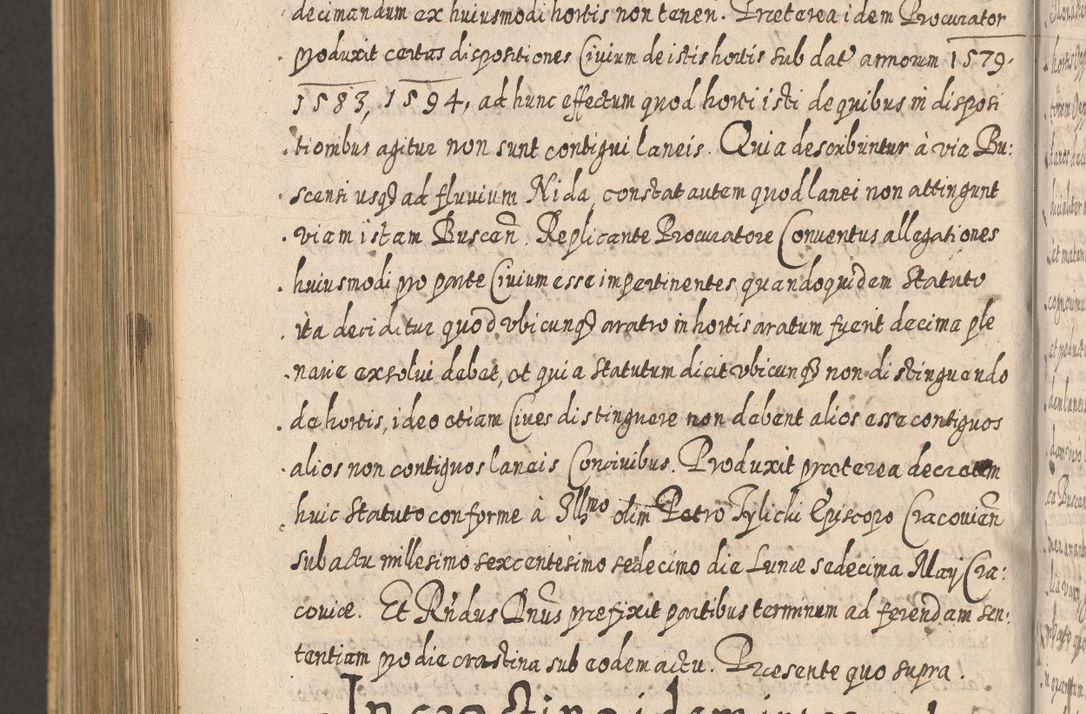 decimandum ex huiusmodi hortis non tenen. Præterea idem Procurator
produxit certas dispositiones Civium de istis hortis sub dat annorum 1579.
1583, 1594, ad hunc effectum quod horti isti de quibus in disposi
tionibus agitur non sunt contigui laneis. Quia describuntur à via Bu:
scensi usq ad fluvium Nida, constat autem quod lanei non attingunt
viam istam Buscen. Replicante Procuratore Conventus allegationes
huiusmodi pro parte Civium esse impertinentes quandoquidem Statuto
ita deciditur quod vbicunq aratro in hortis aratum fuerit decima ple
narie exsolvi debet, et quia Statutum dicit vbicunq non distinguendo
de hortis, ideo etiam Cives distinguere non debent alios esse contiguos
alios non contiguos laneis Concivibus. Produxit præterea decretum
huic Statuto conforme à Illmo olim Petro Tylicki Episcopo Cracovien
sub actu millesimo sexcentesimo sedecimo die Lunæ sedecima Maij Cra:
coviæ. Et Rndus Dnus præfixit partibus terminum ad ferendam sen:
tentiam pro die crastina sub eodem actu. Præsente quo supra.
In crastino idem